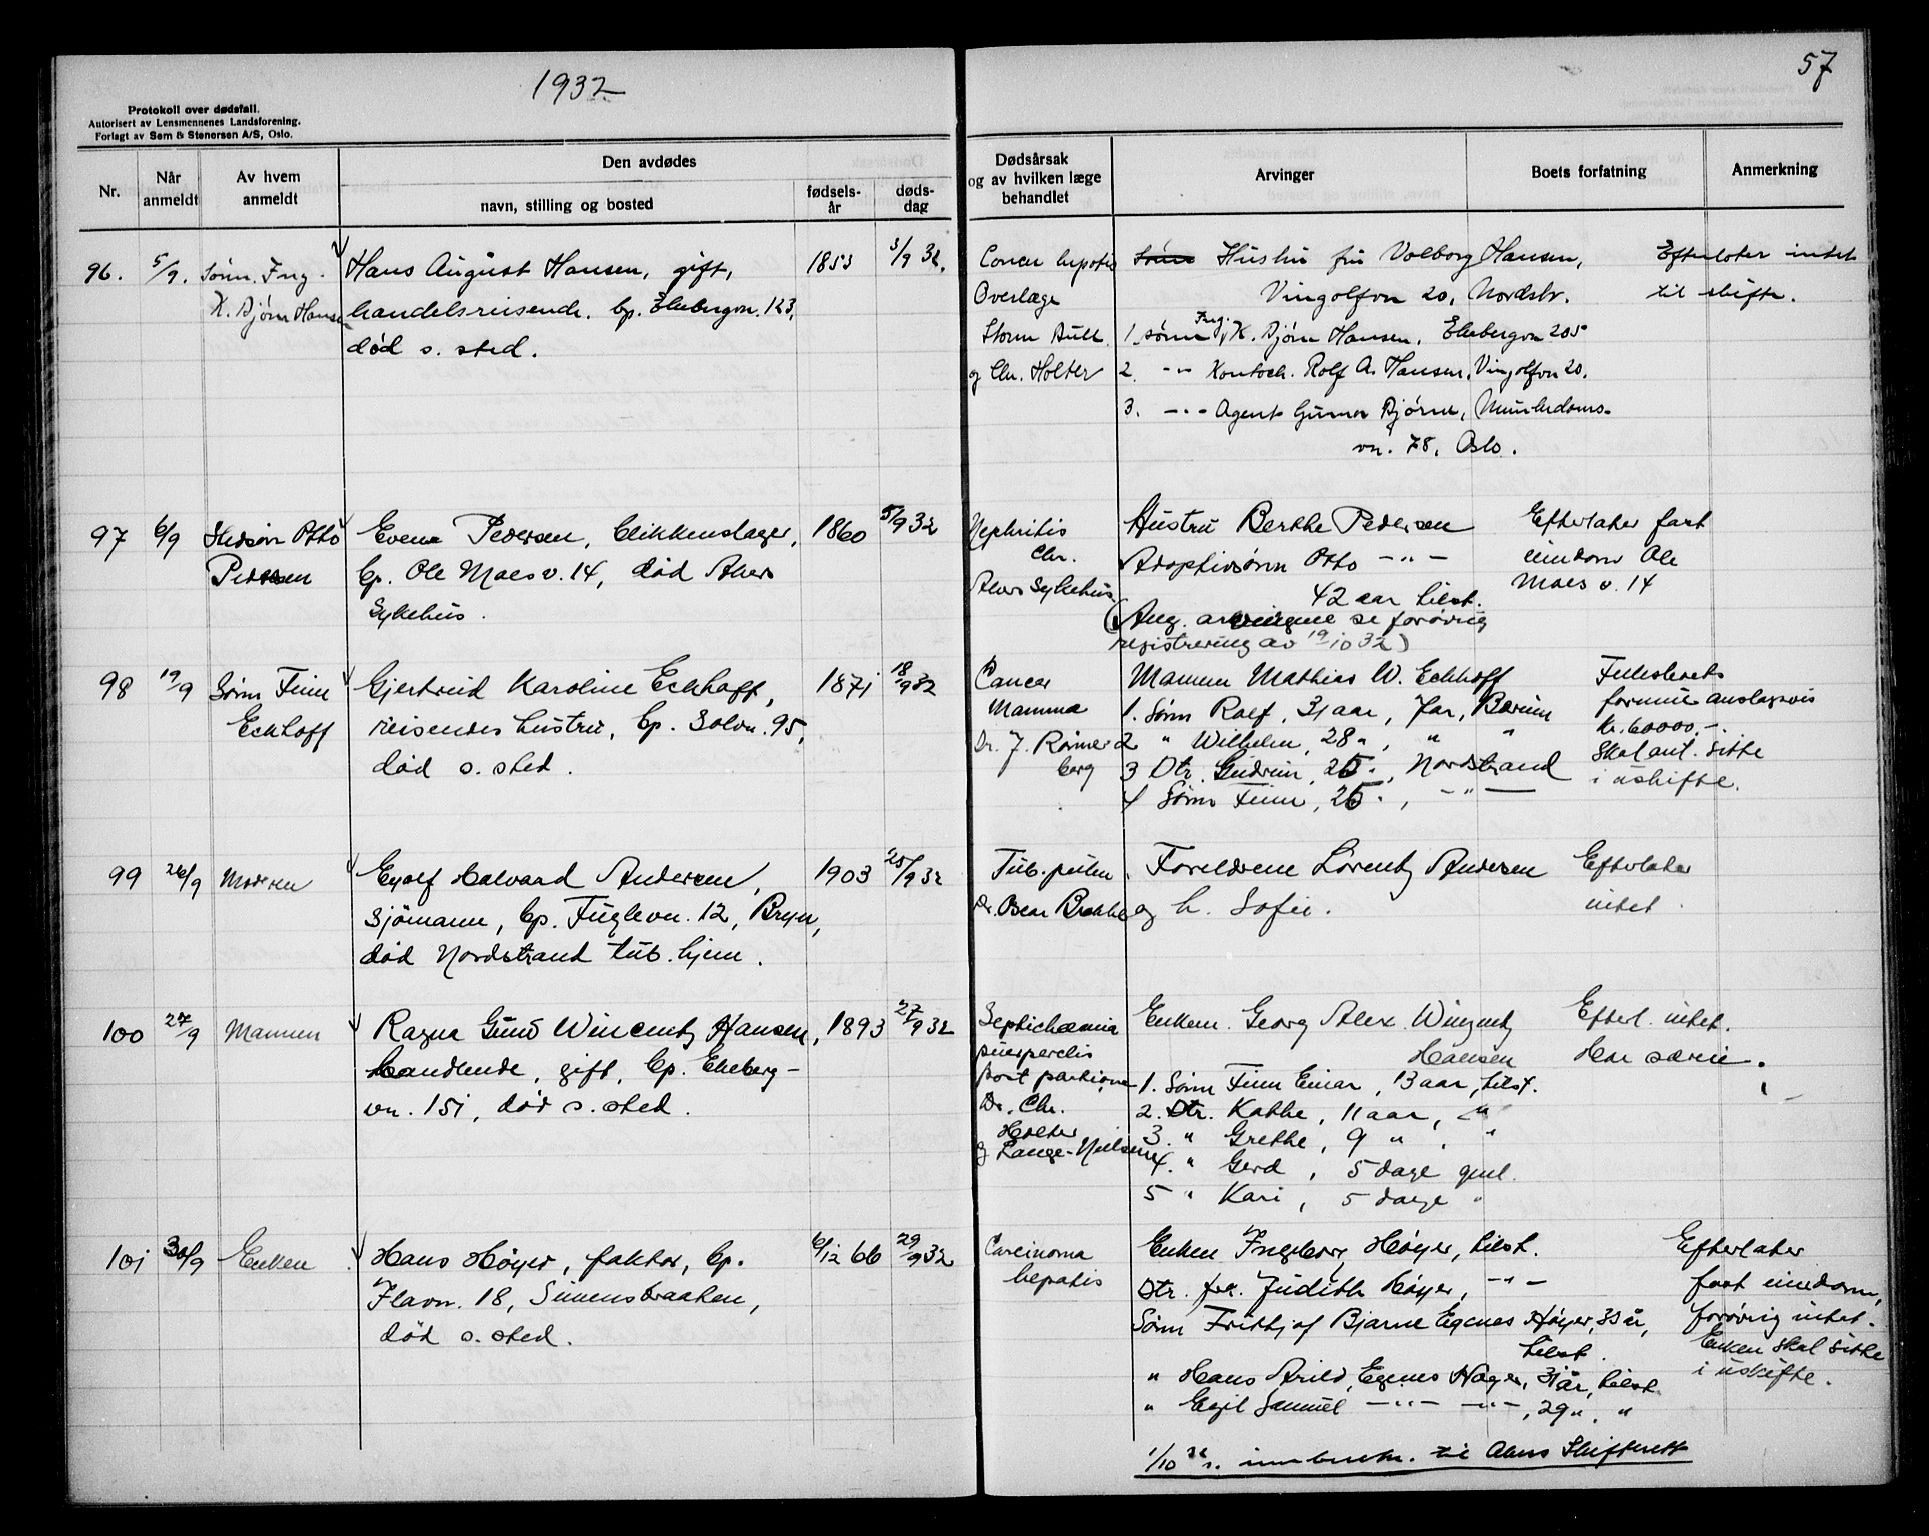 1932
57
Protokoll over dødsfall.
Autorisert av Lensmennenes Landsforening.
Forlagt av Sem & Stenersen A/S, Oslo.
Nr.
Når anmeldt
Av hvem anmeldt
Den avdødes
navn, stilling og bosted
fødsels-år
døds-dag
Dødsårsak og av hvilken læge behandlet
Arvinger
Boets forfatning
Anmerkning
96. 5/9. Sønn. Ing. Hans August Hansen, gift, 1853 3/9 32.
K. Bjørn Hansen handelsreisende. bp. Ekebergvn. 123,
død s. sted.
Cancer hepatis
Overlæge
Storm Bull
og Chr. Holter
Sønn Hustru fru Valborg Hansen,
Vingolfvn 20, Nordstr.
1. sønn Ing. K. Bjørn Hansen, Ekebergvn 205
2. -"- Kontoch. Rolf A. Hansen, Vingolfvn 20.
3. -"- Agent Gunnar Bjørn, Munkedams-
vn. 78, Oslo.
Efterlater intet
til skifte.
97 6/9 Stedsøn Otto Pedersen
Even Pedersen, blikkenslager, 1860 5/9 32
bp. Ole Moes v. 14, død Akers
Sykehus.
Nephritis
Chr.
Akers Sykehus
Hustru Berthe Pedersen
Adoptivsønn Otto -"-
42 aar tilst.
(Ang. arvingene se forøvrig
registrering av 19/10 32)
Efterlater fast
eiendom Ole
Moes v. 14
98 19/9 Sønn Finn Eckhoff
Gjertrud Karoline Eckhoff, 1871 18/9 32
reisendes hustru, bp. Solvn. 95,
død s. sted.
Cancer
Mamma
Dr. J. Rømer
berg
Mannen Mathias W. Eckhoff
1. Sønn Rolf, 31 aar, Jar, Bærum
2 " Wilhelm, 28 ", " "
3 Dtr. Gudrun, 25 ", Nordstrand
4 Sønn Finn, 25 ", -"-
Fellesboets
formue anslagsvis
kr. 60000.-
Skal ant. sitte
i uskifte.
99 26/9 Moderen
Eyolf Halvard Andersen, 1903 25/9 32
sjömann, bp. Fuglevn. 12, Bryn,
død Nordstrand tub. hjem.
Tub. pulm.
Dr. Oscar Brekke
Foreldrene Lorentz Andersen
og h. Sofie.
Efterlater
intet.
100 27/9 Mannen
Ragna Gund Wincentz Hansen, 1893 27/9 32
handlende, gift, bp. Ekeberg-
vn. 151, død s. sted.
Septichæmia
puerperalis
post partum
Dr. Chr.
Holter
og Lange-Nielsen
Enkem. Georg Alex Wingentz
Hansen
1. Sønn Finn Einar, 13 aar, tilst.
2. Dtr. Kathe, 11 aar, "
3. " Grethe, 9 ", "
4. " Gerd, 5 dage gml.
5 " Kari, 5 dage "
Efterl. intet.
Har særeie.
101 30/9 Enken
Hans Høyer, faktor, bp. 6/12 66 29/9 32
Flavn. 18, Simensbraaten,
død s. sted.
Carcinoma
hepatis
Enken Ingeborg Høyer, tilst.
Dtr. frk. Judith Høyer, -"-
Sønn Fritjof Bjarne Egenes Høyer, 33 år,
tilst.
" Hans Arild Egenes Høyer, 31 år, tilst.
" Egil Samuel -"- -"-, 29 ", "
1/10 32 s. innberetn. til Akers Skifterett
Efterlater
fast eiendom,
forøvrig intet.
Enken skal sitte
i uskifte.